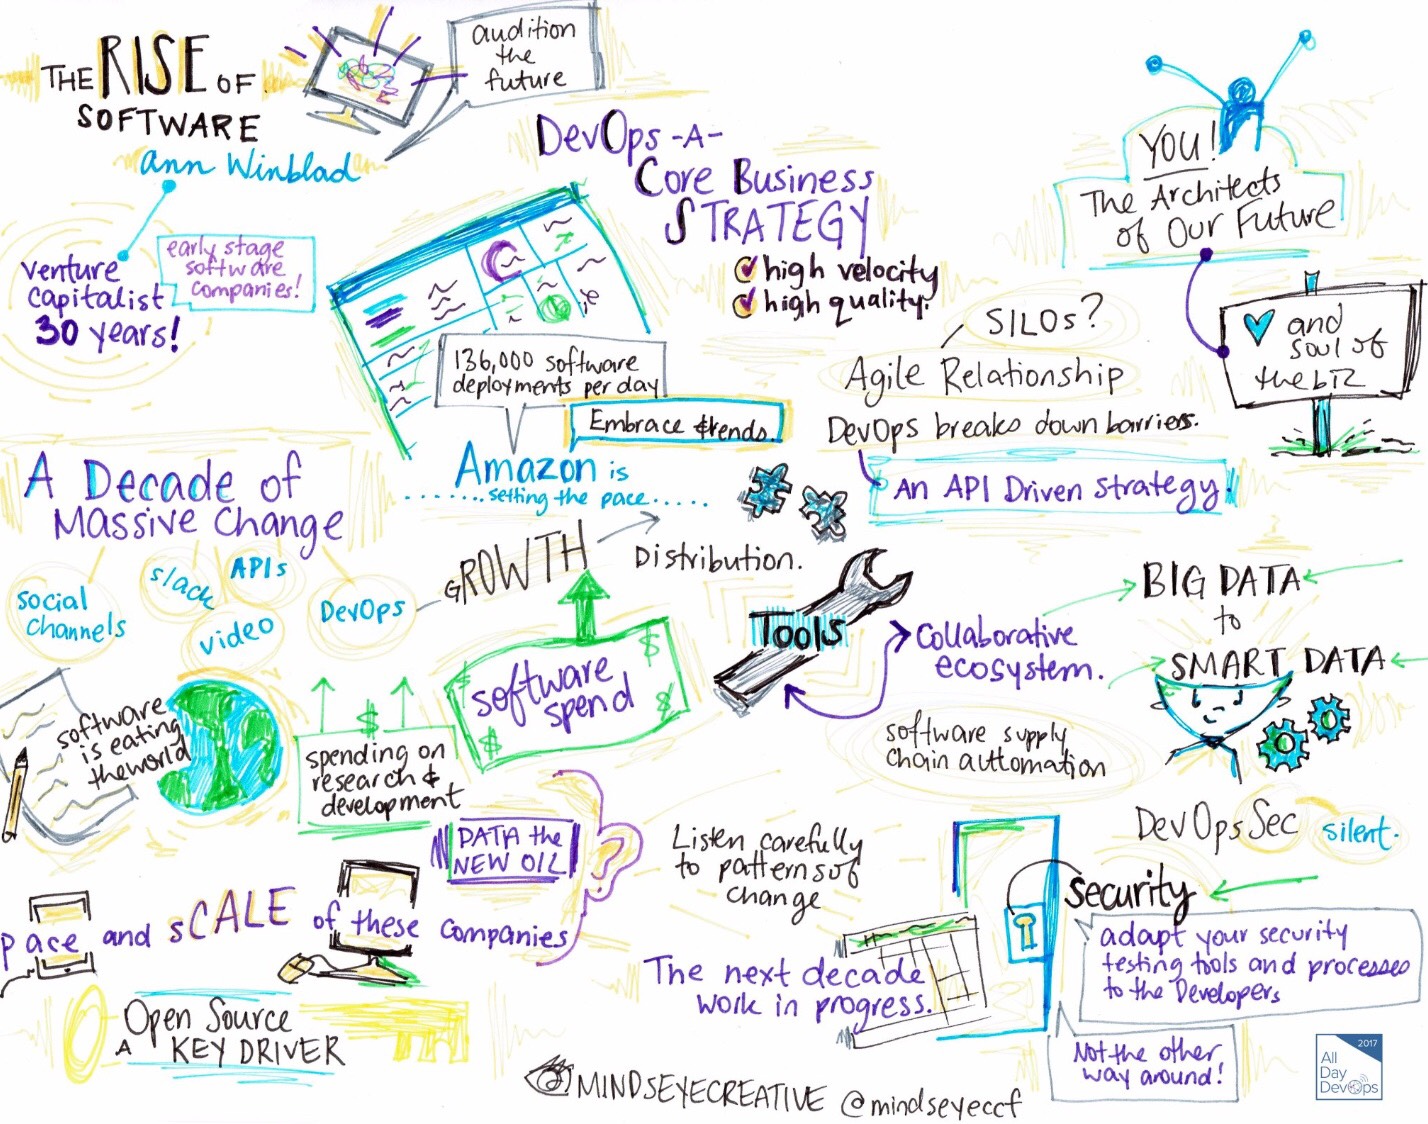 THE RISE OF
SOFTWARE
ann Winblad
audition
the
future
venture
capitalist
30 years!
early stage
software
companies!
DevOps -A-
Core Business
STRATEGY
high velocity
high quality!
136,000 software
deployments per day
Embrace trends.
Amazon is
........setting the pace......
YOU!
The Architects
of Our Future
and
soul of
the biz
SILOs?
Agile Relationship
DevOps breaks down barriers.
An API Driven Strategy!
A Decade of
Massive Change
social
channels
slack
APIs
video
DevOps
GROWTH
Distribution.
software
is eating
the world
$
spending on
research &
development
$
software
spend
$
$
$
Tools
Collaborative
ecosystem.
BIG DATA
to
SMART DATA
software supply
chain automation
DATA the
NEW OIL
pace and sCALE of these companies
?
Open Source
A KEY DRIVER
Listen carefully
to patterns of
change
The next decade
work in progress.
DevOpsSec silent.
security
adapt your security
testing tools and processes
to the Developers
Not the other
way around!
MINDSEYECREATIVE @mindseyeccf
2017
All
Day
DevOps